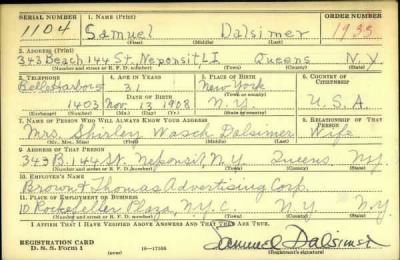 SERIAL NUMBER 1. NAME (Print) ORDER NUMBER
1104 Samuel Dalsimer 1933
(First) (Middle) (Last)
2. ADDRESS (Print)
343 Beach 144 St. Neponsit L I Queens N.Y.
(Number and street or R. F. D. number) (Town) (County) (State)
3. TELEPHONE 4. AGE IN YEARS 5. PLACE OF BIRTH 6. COUNTRY OF CITIZENSHIP
Belle Harbor 5 31 New York
DATE OF BIRTH (Town or county)
1403 Nov. 13 1908 N.Y. U.S.A.
(Exchange) (Number) (Mo.) (Day) (Yr.) (State or country)
7. NAME OF PERSON WHO WILL ALWAYS KNOW YOUR ADDRESS 8. RELATIONSHIP OF THAT PERSON
Mrs. Shirley Wasch Dalsimer Wife
(Mr., Mrs., Miss) (First) (Middle) (Last)
9. ADDRESS OF THAT PERSON
343 B. 144 St. Neponsit, N.Y. Queens N.Y.
(Number and street or R. F. D. number) (Town) (County) (State)
10. EMPLOYER'S NAME
Brown & Thomas Advertising Corp.
11. PLACE OF EMPLOYMENT OR BUSINESS
10 Rockefeller Plaza, N.Y.C. N.Y. N.Y
(Number and street or R. F. D. number) (Town) (County) (State)
I AFFIRM THAT I HAVE VERIFIED ABOVE ANSWERS AND THAT THEY ARE TRUE.
REGISTRATION CARD
D. S. S. Form 1 (over) 16—17105 Samuel Dalsimer